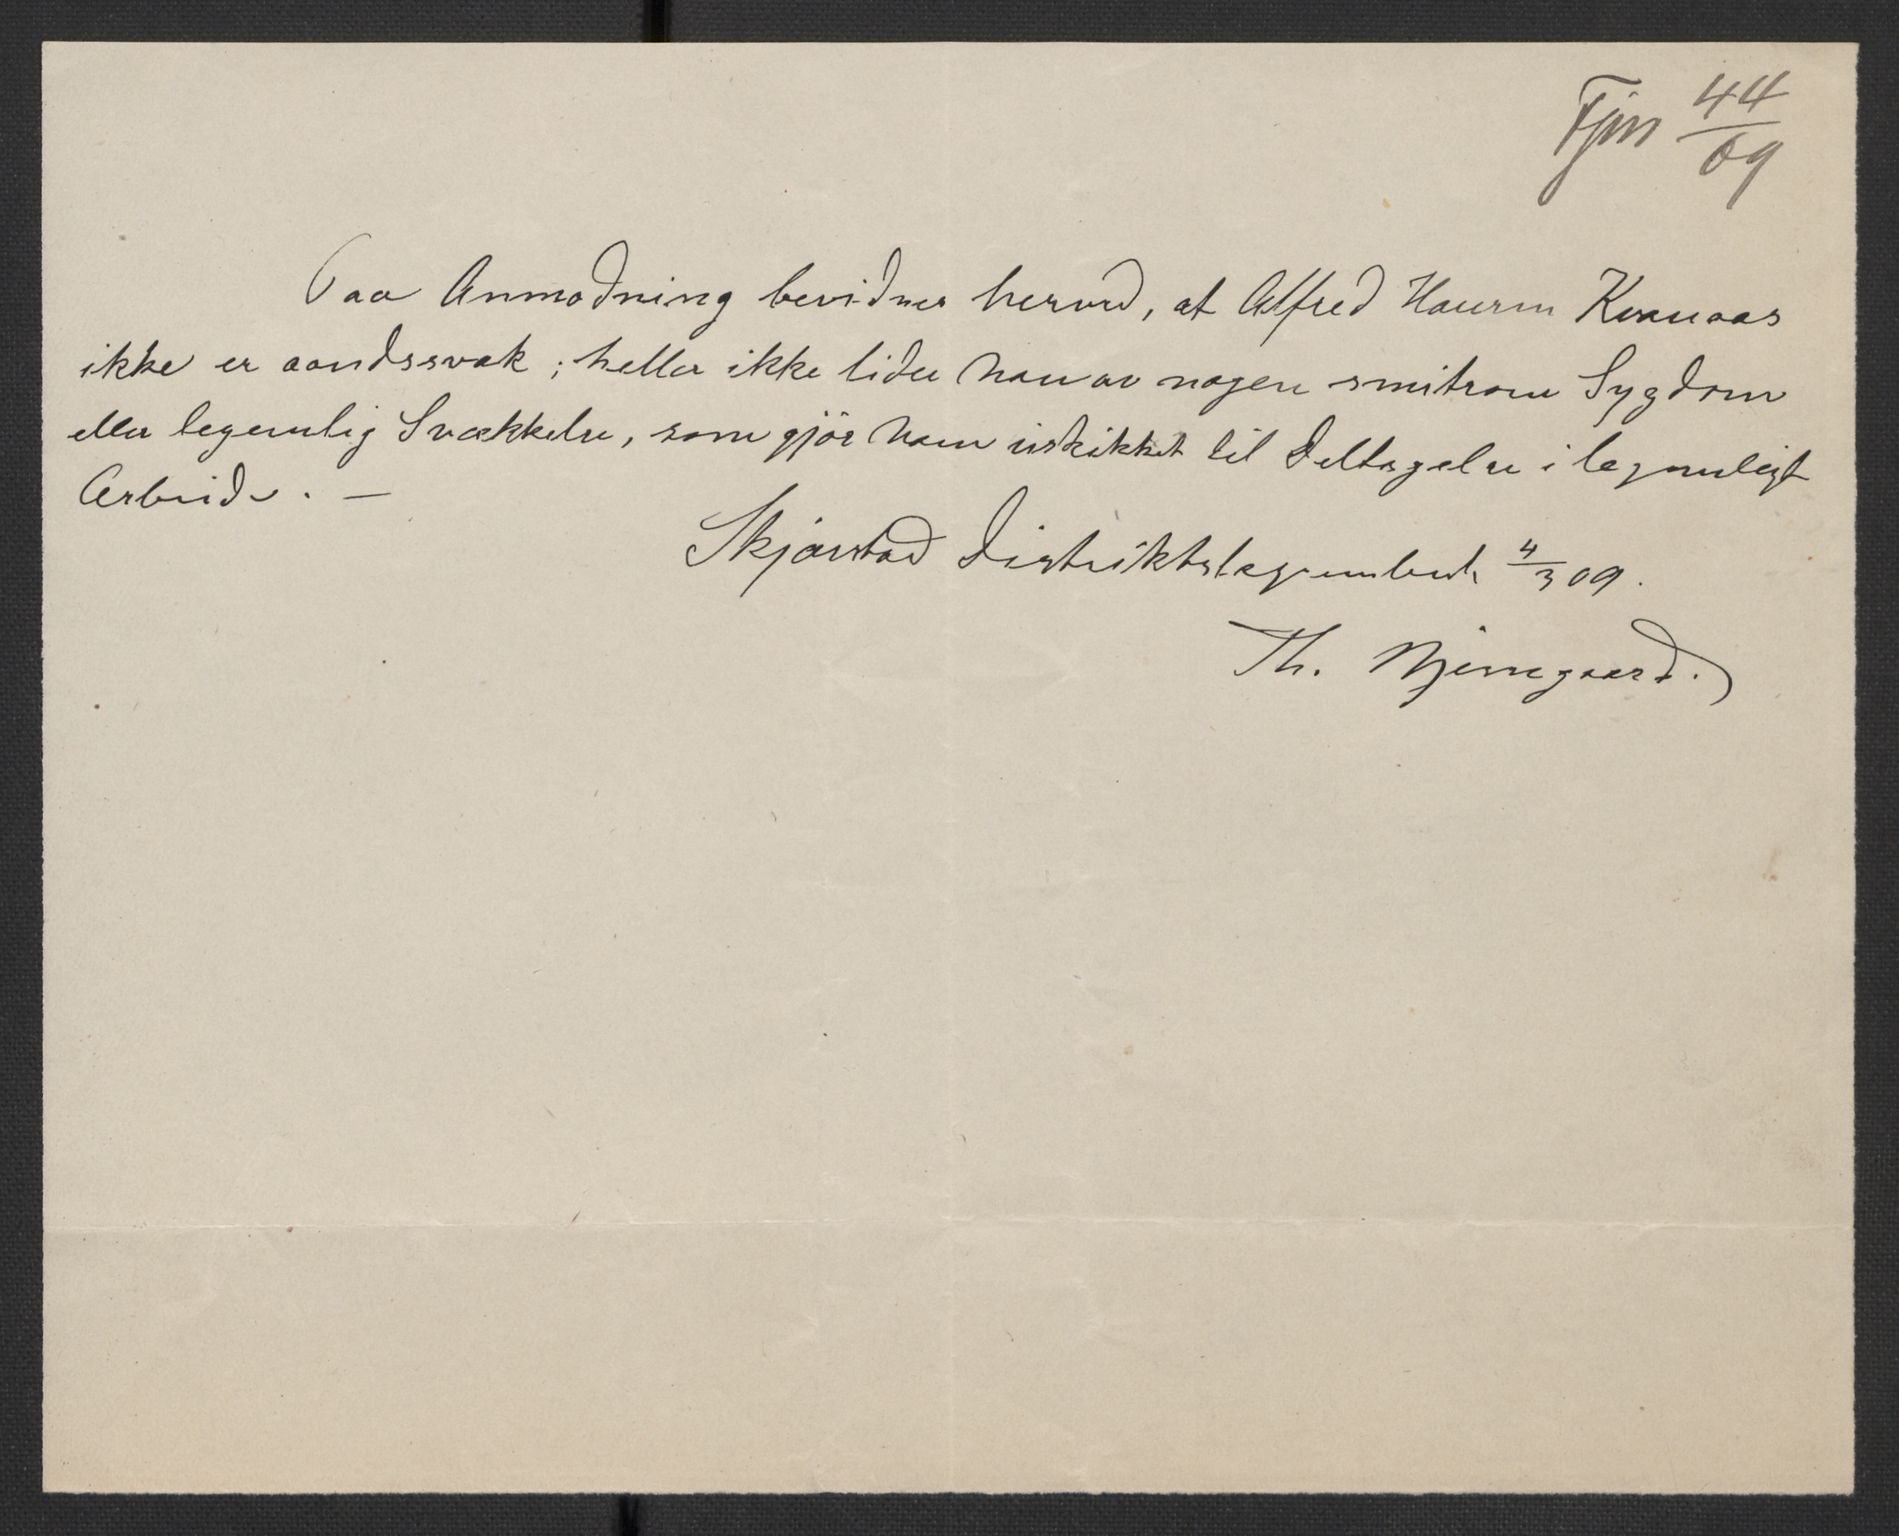 Fjm 44/09
Paa Anmodning bevidnes herved, at Alfred Kvanaas
ikke er aandssvak; heller ikke lider han av nogen smitsom Sygdom
eller legemlig Svækkelse, som gjør ham uskikket til Deltagelse i legemligt
Arbeide. —
Skjærstad Distriktslægeembede 4/3 09.
Th. Bjerregaard.